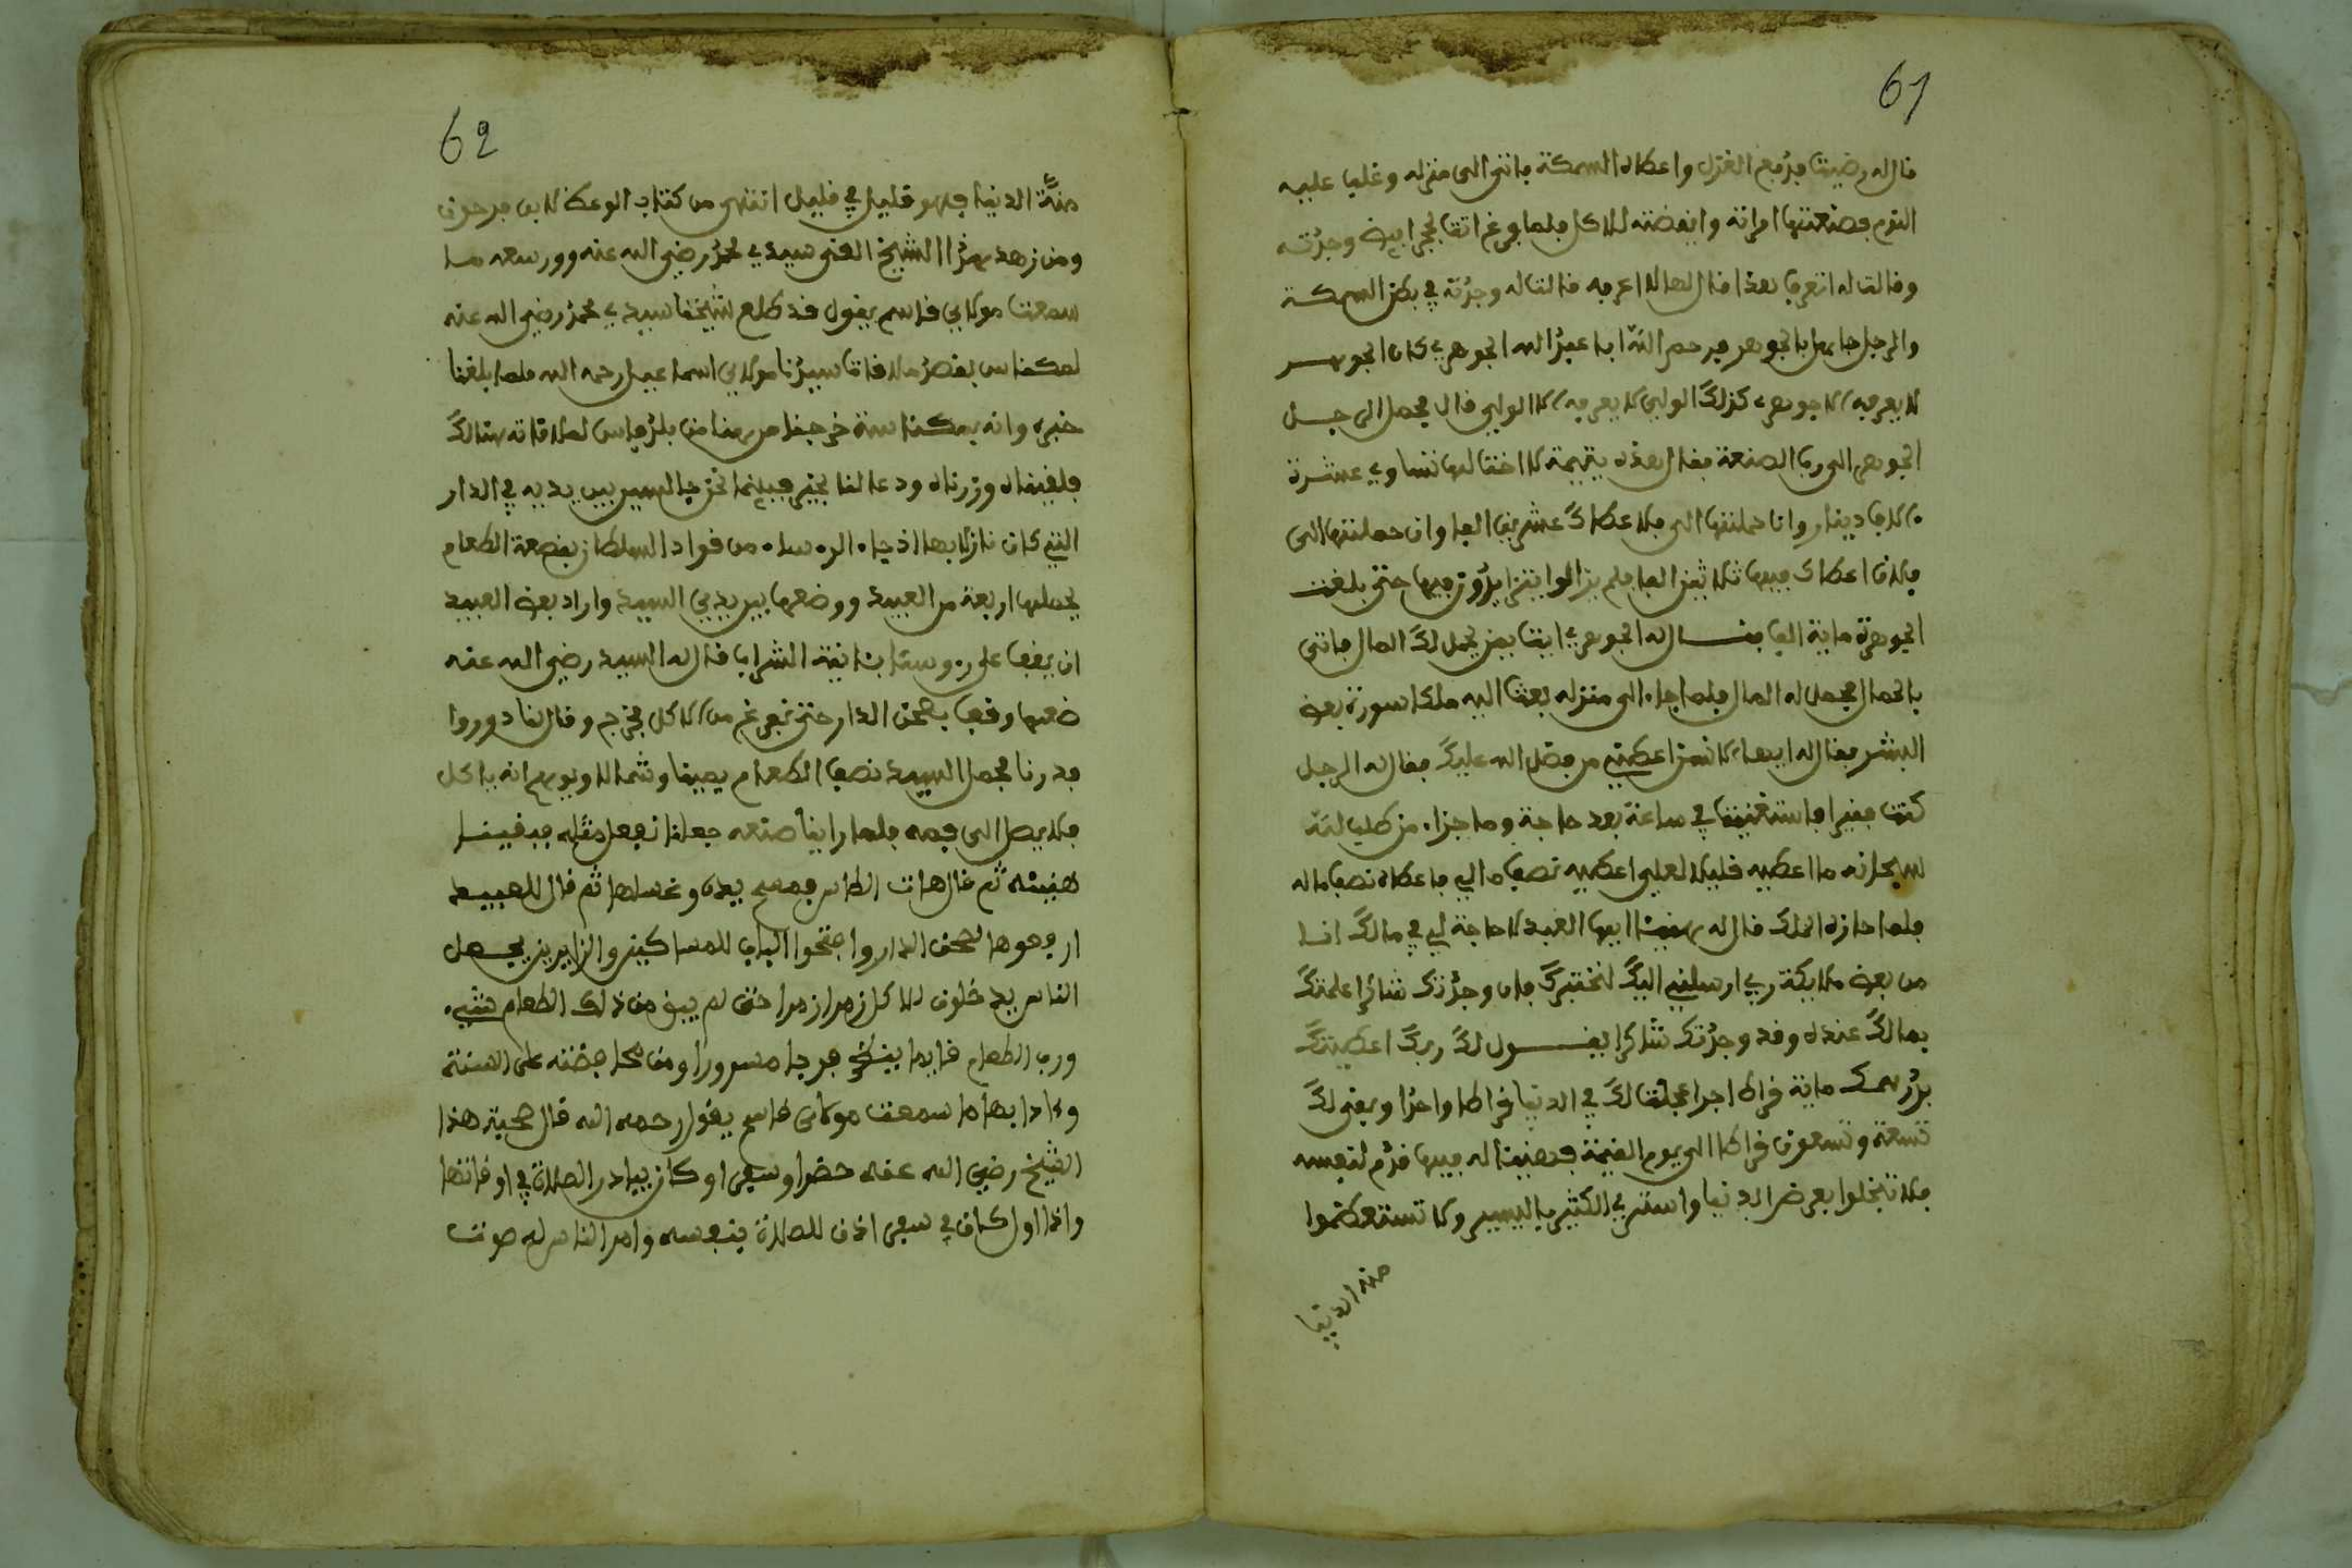 61
قال له رضيت فدفع الغزل واعطاه السمكة فاتى الى منزله وغلب عليه
النوم فصنعتها امراته وايقضته للاكل فلما فرغ اتت بحجر ابيض وجدته
وقالت له اتعرف هذا قال لها لا اعرفه قالت له وجدته في بطن السمكة
والرجل جاهل بالجوهر فرحم الله ابا عبد الله الجوهري كان الجوهر
لا يعرفه الا جوهري كذلك الولي لا يعرفه الا الولي قال فحمل الى جل
الجوهر الى رب الصنعة فقال هذه يتيمة لا اخت لها تساوي عشرة
ءالاف دينار وانا حملتها الى فلا عطاك عشرين الفا وان حملتها الى
فلان اعطاك فيها ثلاثين الفا فلم يزالوا يتزايدون فيها حتى بلغت
الجوهرة ماية الف فقال له الجوهري ايت بمن يحمل لك المال فاتى
بالحمال فحمل له المال فلما جاء الى منزله بعث اليه ملكا سورة بعض
البشر فقال له ايها الانسان اعطني من فضل الله عليك فقال له الرجل
كنت فقيرا فاستغنيت في ساعة بعد حاجة وما جزاء من طلب لله
سبحانه ما اعطيه قليلا لعلي اعطيه نصف مالي فاعطاه نصف ماله
فلما حازه الملك قال له هنيئا ايها العبد لا حاجة لي في مالك انا
من بعض ملايكة ربي ارسلني اليك لنختبرك فان وجدتك شاكرا اعلمتك
بما لك عنده وقد وجدتك شاكرا يقول لك ربك اعطيتك
بدرهمك ماية قراط اجرا عجلت لك في الدنيا قراطا واحدا وبقي لك
تسعة وتسعون قراطا الى يوم القيمة فهنيئا له فيها قدم لنفسه
فلا تبخلوا بعرض الدنيا واشتري الكثير باليسير ولا تستعظموا
منة الدنيا
62
منة الدنيا فهو قليل في قليل انتهى من كتاب الوعظ لابن فرحون
ومن زهد هذا الشيخ الفني سيدي محمد رضي الله عنه وورعه ما
سمعت مولاي قاسم يقول قد طلع شيخنا سيدي محمد رضي الله عنه
لمكناس بقصد ملاقات سيدنا مولاي اسماعيل رحمه الله فلما بلغنا
خبره وانه بمكناسة خرجنا من هنا من بلد فاس لملاقاته هنالك
فلقيناه وزرناه ودعا لنا بخير فبينما نحن جالسين بين يديه في الدار
التي كان نازلا بها اذ جاء الرءساء من قواد السلطان بقصعة الطعام
يحملها اربعة من العبيد ووضعها بين يدي السيد واراد بعض العبيد
ان يقف على رءوسنا بئانية الشراب فقال له السيد رضي الله عنه
ضعها وقف بصحن الدار حتى نفرغ من الاكل فخرج وقال لنا دوروا
فدرنا فجعل السيد نصف الطعام يمينا وشمالا ويوهم انه ياكل
فلا يصل الى فمه فلما راينا صنعه جعلنا نفعل مثله فبقينا
هنيئة ثم قال هات الطاس فمسح يده وغسلها ثم قال للعبيد
ارفعوها لصحن الدار وافتحوا الباب للمساكين والزايرين فجعل
الناس يدخلون للاكل زمرا زمرا حتى لم يبق من ذلك الطعام شيء
ورب الطعام قايما ينظر فرحا مسرورا ومن محافضته على السنة
وءادابها ما سمعت مولاي قاسم يقول رحمه الله قال صحبت هذا
الشيخ رضي الله عنه حضرا وسفرا وكان يبادر الصلاة في اوقاتها
واذا اول كان في سفر اذن للصلاة بنفسه وامر الناس له صوت